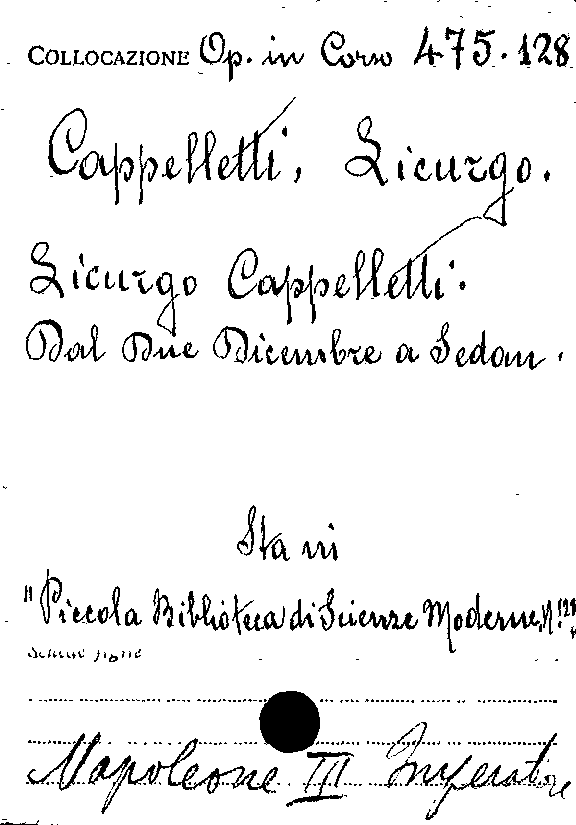 COLLOCAZIONE Op. in Corso 475.128
Cappelletti, Licurgo.
Licurgo Cappelletti.
Dal Due Dicembre a Sedan.
Sta in
"Piccola Biblioteca di Scienze Moderne, N.º
Napoleone III Imperatore